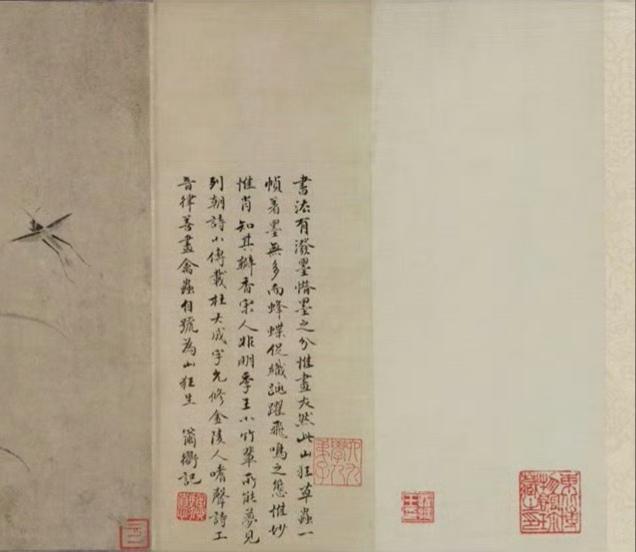 書法有潑墨惜墨之分惟畫亦然此山狂草蟲一
幀著墨無多而蜂蝶促織踴躍飛鳴之態惟妙
惟肖知其瓣香宋人非明季王小竹輩所能夢見
列朝詩小傳載杜大成字允修金陵人嗜聲詩工
音律善畫禽蟲自號為山狂生 籀衡記